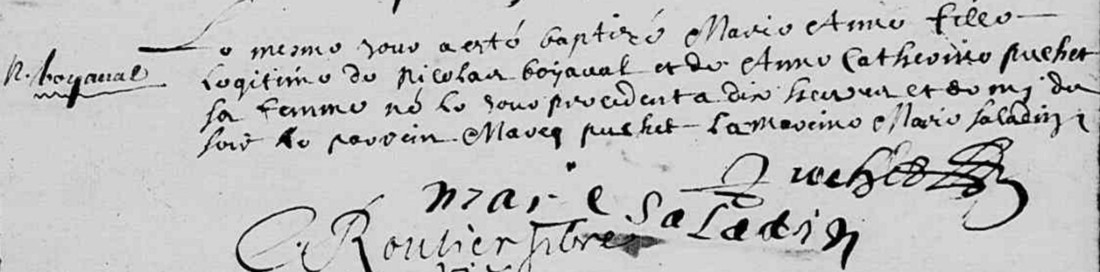 Le mesme jour a esté baptizé Marie Anne fille
N. boyaval
legitime de Nicolas boyaval et de Anne Catherine puchet
sa femme né le jour precedent a dix heures et demi du
soir le parein Marcq puchet La mareine Marie saladin
puchet
marie saladin
Roulier